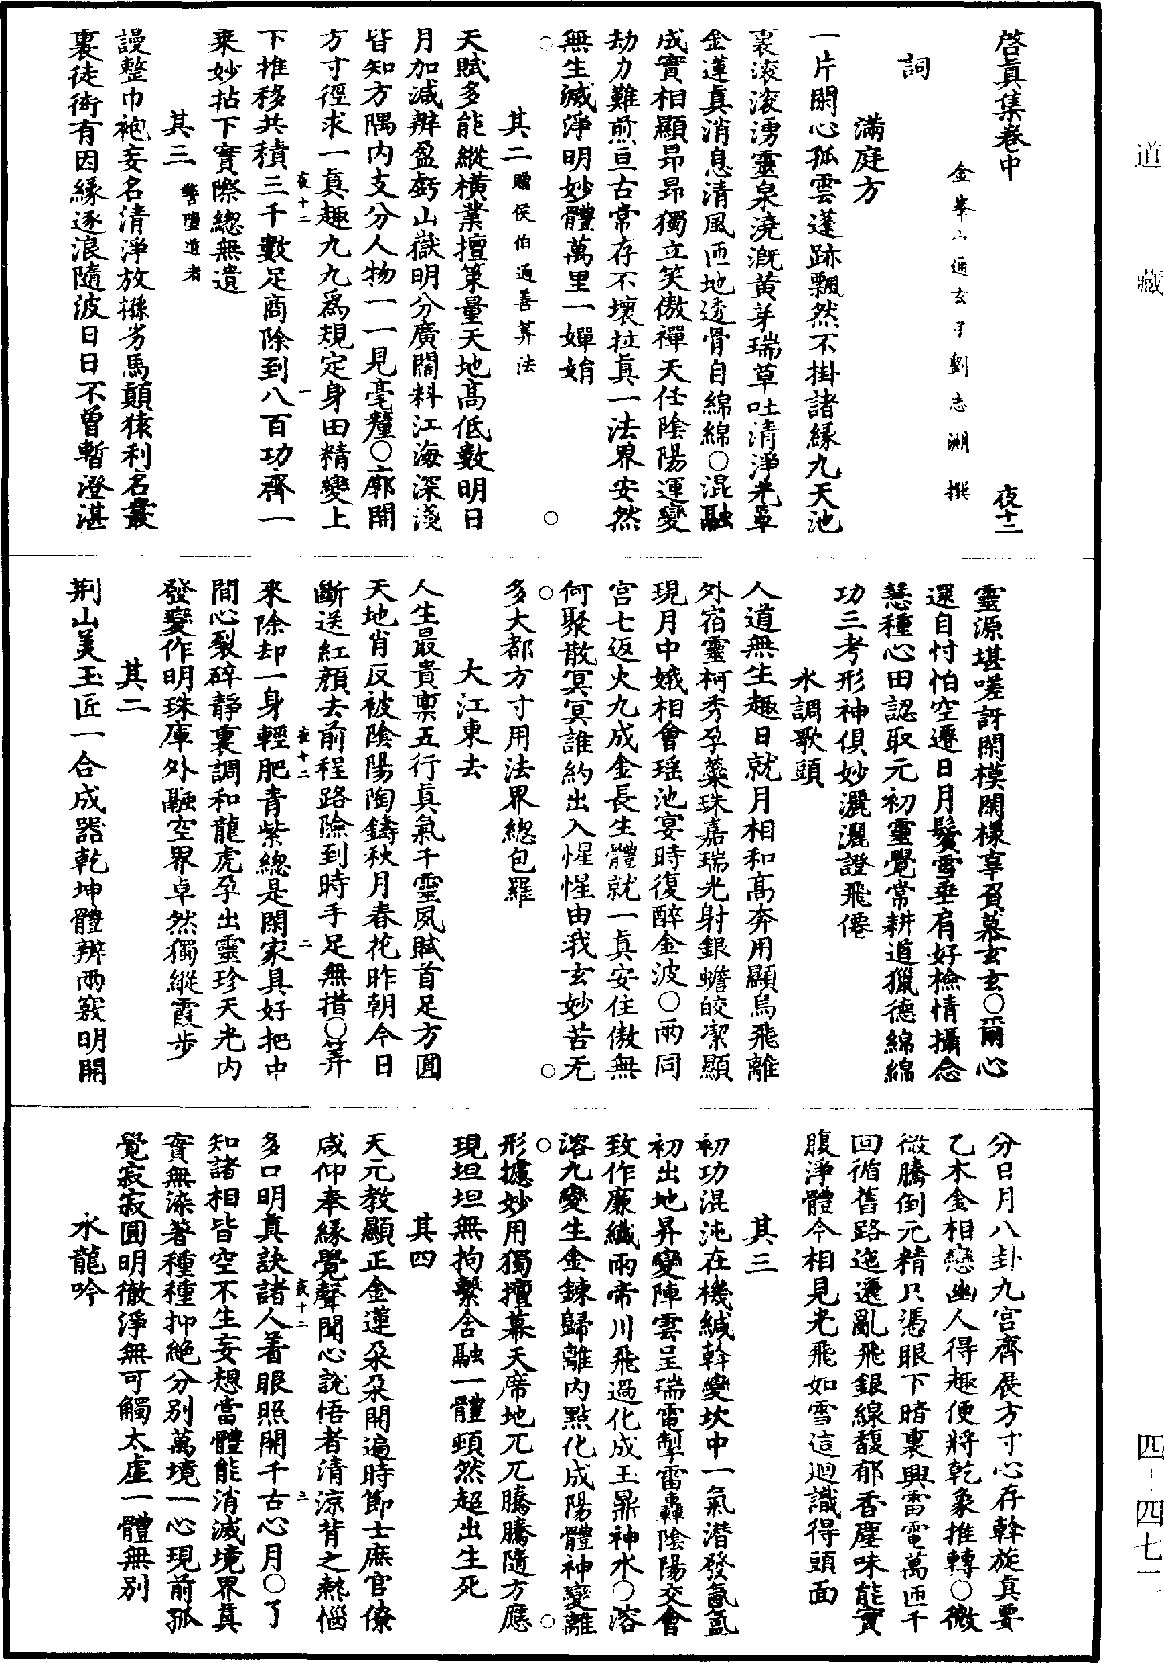 道藏
啓眞集卷中
夜十二
金峯山通玄子劉志淵撰
詞
滿庭方
一片閑心孤雲蓬跡飄然不掛諸緣九天池
裏滚滚湧靈泉澆溉黄芽瑞草吐清淨光罩
金蓮真消息清風匝地透骨自綿綿○混融
成實相顯昂昂獨立笑傲禪天任陰陽運變
劫力難煎亘古常存不壞拉真一法界安然
無生滅淨明妙體萬里一嬋娟
其二贈侯伯通善筭法
天賦多能縱横業擅策量天地高低數明日
月加減辨盈虧山嶽明分廣闊料江海深淺
皆知方隅内支分人物一一見毫釐○廓開
方寸徑求一真趣九九爲規定身田精變上
夜十二
一
下推移共積三千數足商除到八百功齊一
乘妙拈下實際總無遺
其三警墮道者
謾整巾袍妄名清淨放縱劣馬顛猿利名叢
裏徒衒有因緣逐浪隨波日日不曾暫澄湛
靈源堪嗟訝閑模閑樣享貧慕玄玄○爾心
還自忖怕空遷日月鬢雪垂肩好檢情攝念
慧種心田認取元初靈覺常耕道獵德綿綿
功三考形神俱妙灑灑證飛僊
水調歌頭
人道無生趣日就月相和髙奔用顯烏飛離
外宿靈柯秀孕蘂珠嘉瑞光射銀蟾皎潔顯
現月中娥相會瑶池宴時復醉金波○兩同
宫七返火九成金長生體就一真安住傲無
何聚散冥冥誰約出入惺惺由我玄妙苦无
多大都方寸用法界總包羅
大江東去
人生最貴禀五行真氣千靈夙賦首足方圓
天地肖反被陰陽陶鑄秋月春花昨朝今日
斷送紅顔去前程路險到時手足無措○筭
夜十二
二
來除却一身輕肥青紫總是閑家具好把中
間心裂碎靜裏調和龍虎孕出靈珍天光内
發變作明珠庫外融空界卓然獨縱霞步
其二
荆山美玉匠一合成器乾坤體辨兩竅明開
分日月八卦九宫齊展方寸心存幹旋真要
乙木金相戀幽人得趣便將乾象推轉○微
微騰倒元精只憑眼下暗裏興雷電萬匝千
回循舊路迤邐亂飛銀線馥郁香塵味能實
腹淨體今相見光飛如雪這迴識得頭面
其三
初功混沌在機緘幹變坎中一氣潜發氤氲
初出地昇變陣雲呈瑞電掣雷轟陰陽交會
致作廉纖雨帝川飛過化成玉鼎神水○溶
溶九變生金鍊歸離内點化成陽體神變離
形攄妙用獨擅幕天席地兀兀騰騰隨方應
現坦坦無拘繫含融一體頓然超出生死
其四
天元教顯正金蓮朵朵開遍時節士庶官僚
咸仰奉緣覺聲聞心說悟者清凉背之熱惱
夜十二
三
多口明真訣諸人著眼照開千古心月○了
知諸相皆空不生妄想當體能消滅境界真
實無染著種種抑絶分别萬境一心現前孤
覺寂寂圓明徹淨無可觸太虚一體無别
水龍吟
四-四七一